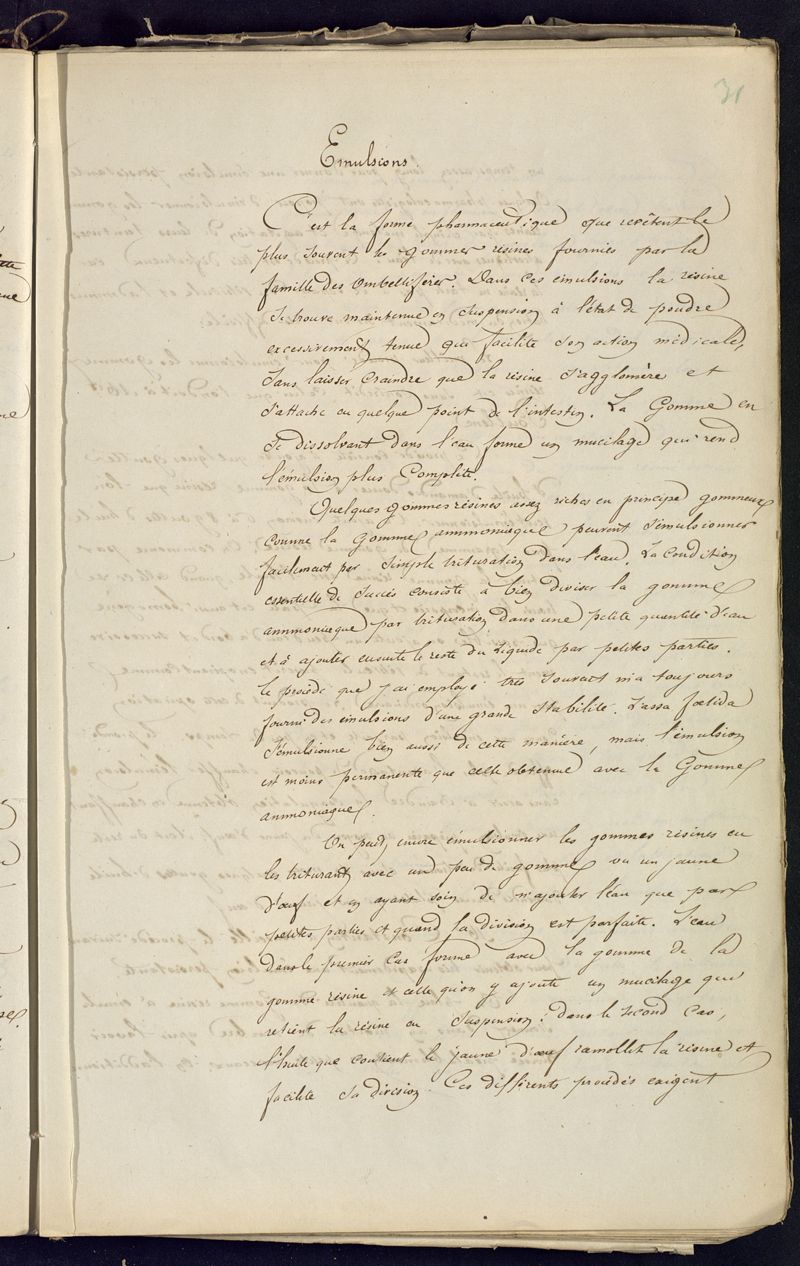 31
Emulsions.
C'est la forme pharmaceutique que revêtent le
plus souvent les gommes résines fournies par la
famille des ombellifères. Dans ces émulsions la résine
se trouve maintenue en suspension à l'état de poudre
excessivement tenue qui facilite son action médicale,
sans laisser craindre que la résine s'agglomère et
s'attache en quelque point de l'intestin. La Gomme en
se dissolvant dans l'eau forme un mucilage qui rend
l'émulsion plus complète.
Quelques gommes résines assez riches en principe gommeux
comme la Gomme ammoniaque peuvent s'émulsionner
facilement par simple trituration dans l'eau. La condition
essentielle de succès consiste à bien diviser la gomme
ammoniaque par trituration dans une petite quantité d'eau
et à ajouter ensuite le reste du liquide par petites parties.
le procédé que j'ai employé très souvent m'a toujours
fourni des émulsions d'une grande stabilité. L'assa foetida
s'émulsionne bien aussi de cette manière, mais l'émulsion
est moins permanente que celle obtenue avec la Gomme
ammoniaque.
On peut encore émulsionner les gommes résines en
les triturant avec un peu de gomme ou un jaune
d'oeuf et en ayant soin de n'ajouter l'eau que par
petites parties et quand la division est parfaite. L'eau
dans le premier cas forme avec la gomme de la
gomme résine et celle qu'on y ajoute un mucilage qui
retient la résine en suspension. dans le second cas,
l'huile que contient le jaune d'oeuf ramollit la résine et
facilite sa division. Ces différents procédés exigent